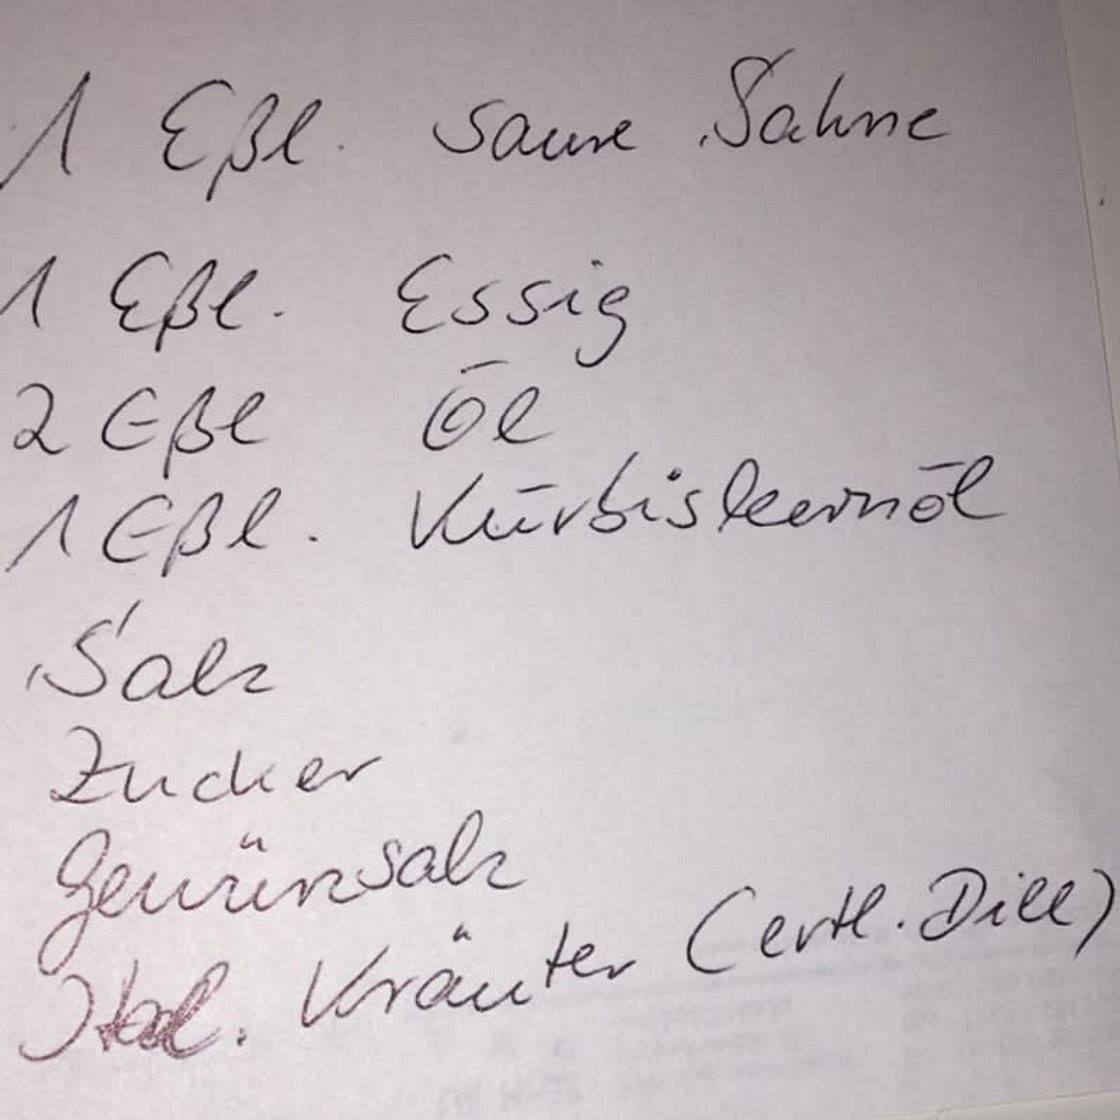 1 Eßl. saure Sahne
1 Eßl. Essig
2 Eßl Öl
1 Eßl. Kürbiskernöl
Salz
Zucker
Gewürzsalz
Ital. Kräuter (evtl. Dill)